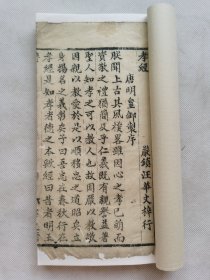 孝經
巖鎮汪華文梓行
唐明皇御製序
朕聞上古其風樸畧雖因心之孝已萌而
資敬之禮猶簡及乎仁義既有親譽益著
聖人知孝之可以教人也故因嚴以教敬
因親以教愛於是以順移忠之道昭矣立
身揚名之義彰矣子曰吾志在春秋行在
孝經是知孝者德之本歟經曰昔者明王